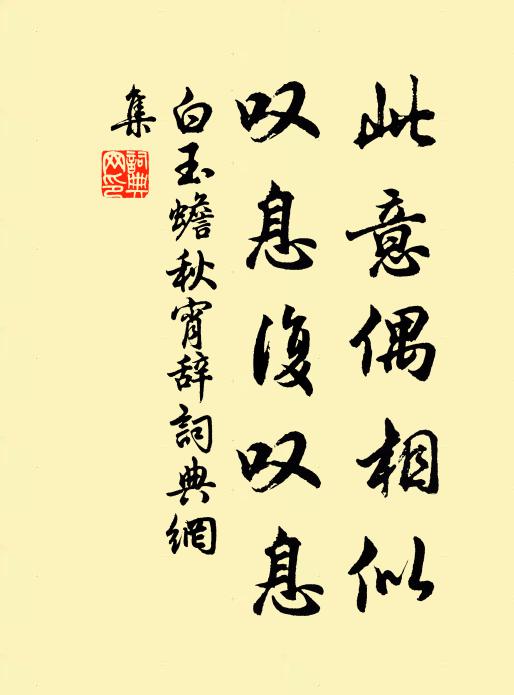 此意偶相似
叹息復叹息
白玉蟾秋宵辞詞典網
集
詞典网印